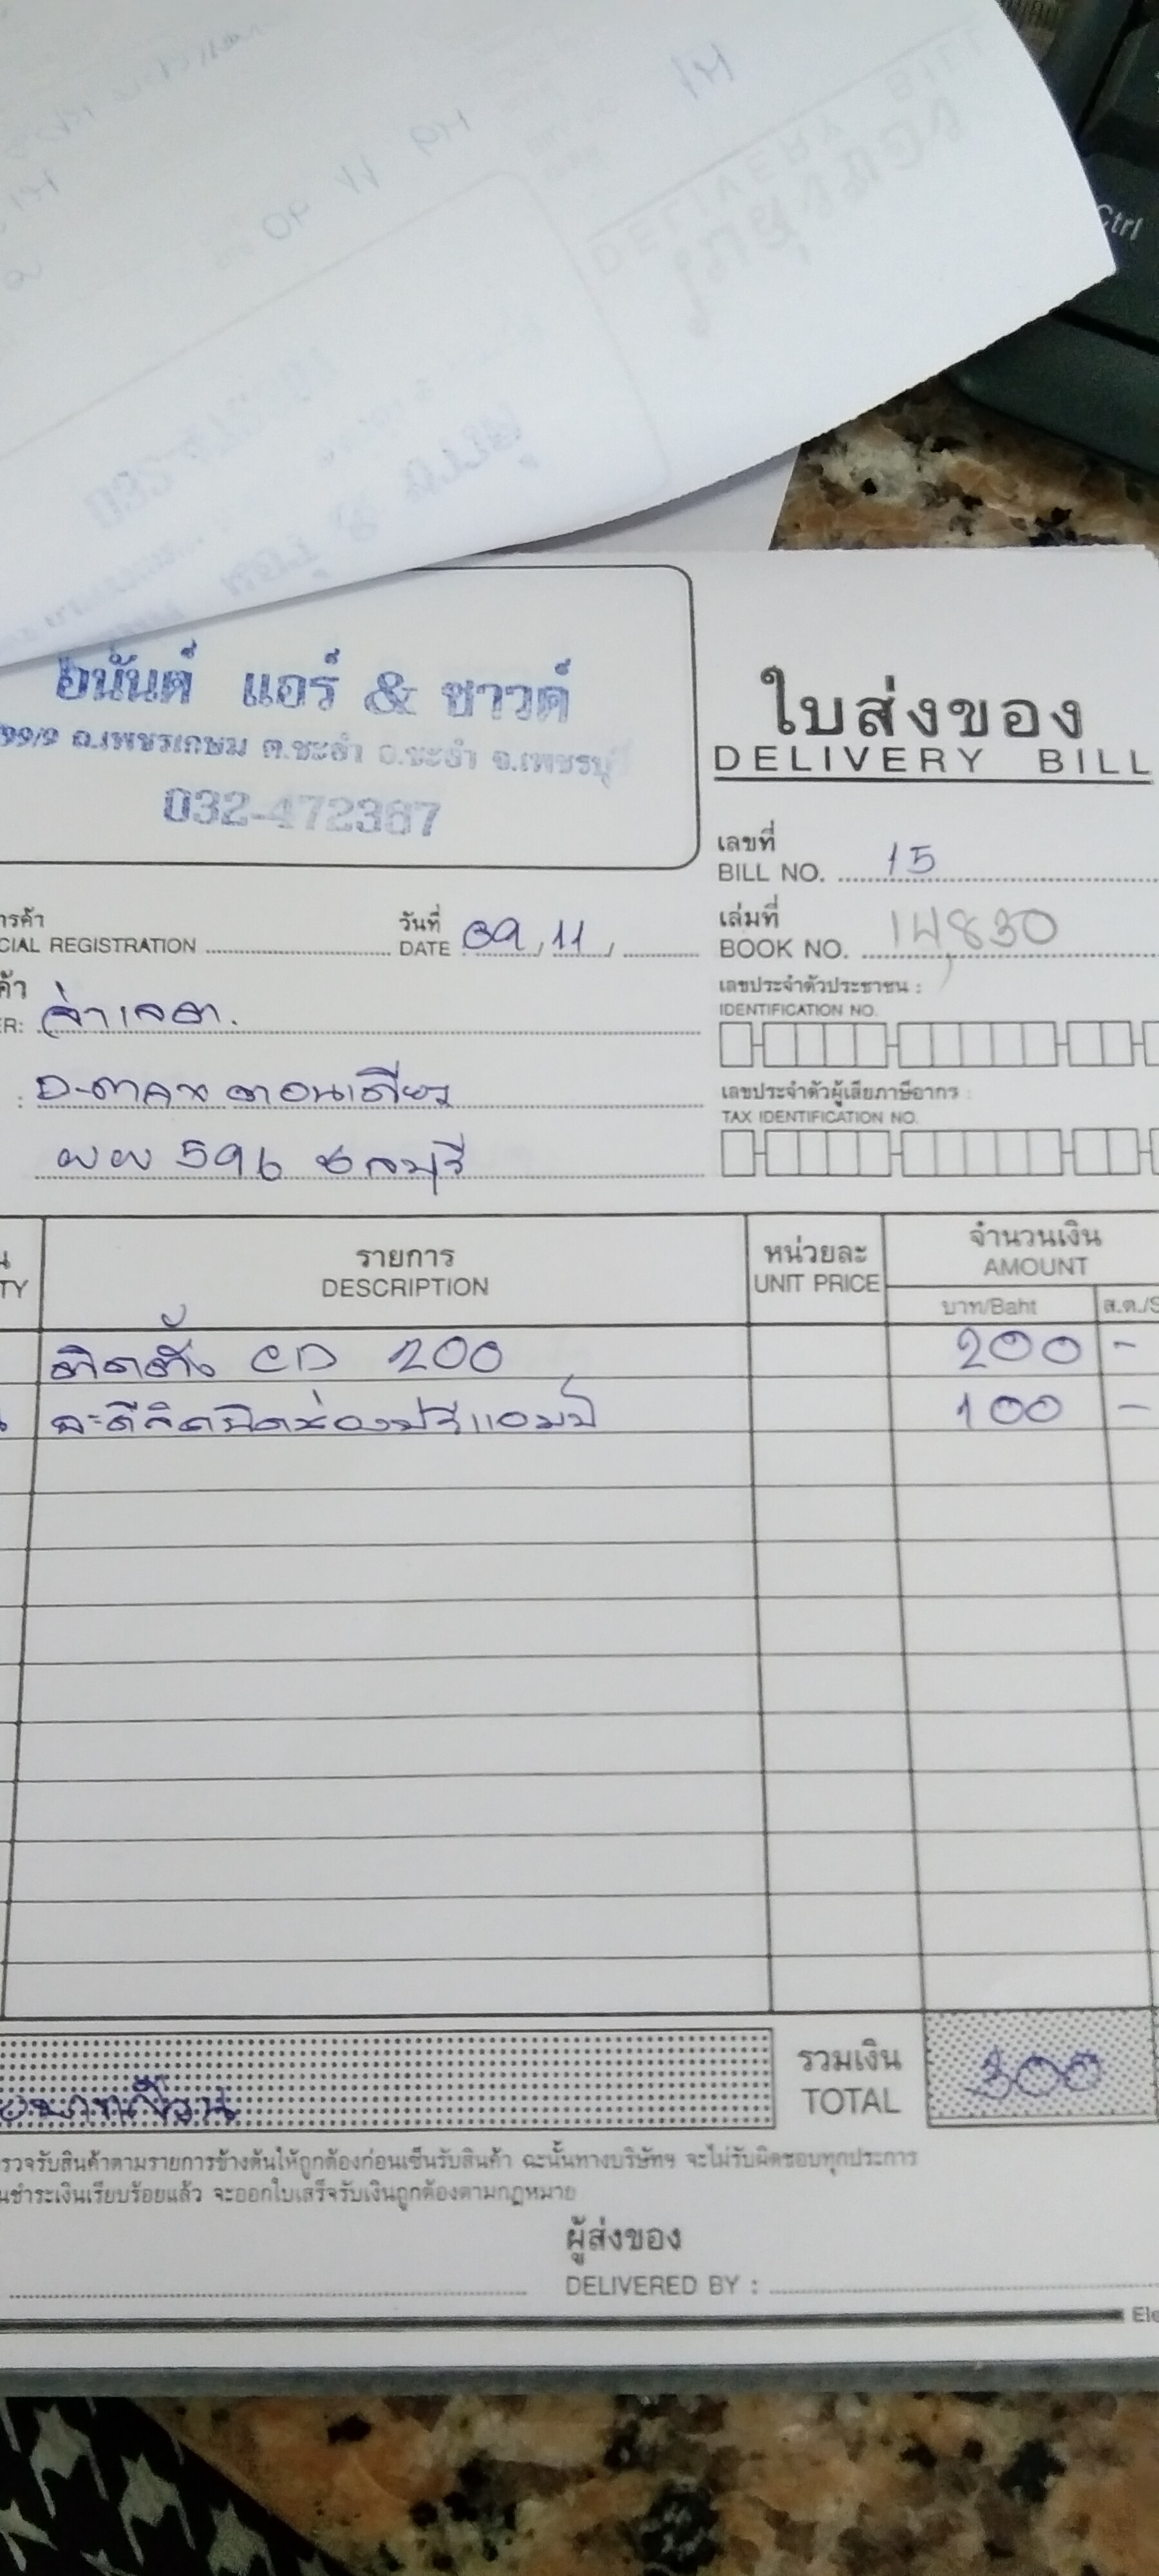 Ctrl
อนันต์ แอร์ & ซาวด์
99/9 ถ.เพชรเกษม ต.ชะอำ อ.ชะอำ จ.เพชรบุรี
032-472367
ใบส่งของ
DELIVERY BILL
เลขที่
BILL NO. 15
เล่มที่
BOOK NO. 14830
วันที่
DATE 09, 11,
CIAL REGISTRATION
เลขประจำตัวประชาชน :
IDENTIFICATION NO.
ER: จ่าเลต.
เลขประจำตัวผู้เสียภาษีอากร :
TAX IDENTIFICATION NO.
596 ชลบุรี
รายการ
DESCRIPTION
หน่วยละ
UNIT PRICE
จำนวนเงิน
AMOUNT
บาท/Baht
ส.ต./S
ติดตั้ง CD 200 200 -
100 -
รวมเงิน
TOTAL 300
รวจรับสินค้าตามรายการข้างต้นให้ถูกต้องก่อนเซ็นรับสินค้า ฉะนั้นทางบริษัทฯ จะไม่รับผิดชอบทุกประการ
นชำระเงินเรียบร้อยแล้ว จะออกใบเสร็จรับเงินถูกต้องตามกฎหมาย
ผู้ส่งของ
DELIVERED BY :
Ele